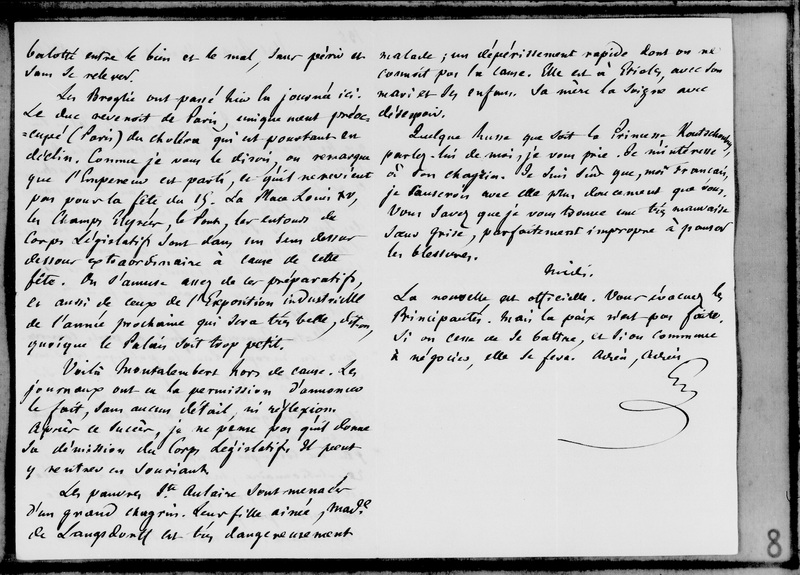 balotté entre le bien et le mal, sans périr et
sans se relever.
Les Broglie ont passé hier la journée ici.
Le duc revenoit de Paris, uniquement préoc-
-cupé (Paris) du choléra qui est pourtant en
déclin. Comme je vous le disois, on remarque
que l'Empereur est parti, et qu'il ne revient
pas pour la fête du 15. La Place Louis XV,
les Champs Elysées, le Pont, les entours du
Corps Législatif sont dans un sens dessus
dessous extraordinaire à cause de cette
fête. On s'amuse assez de ces préparatifs,
et aussi de ceux de l'Exposition industrielle
de l'année prochaine qui sera très belle, dit-on,
quoique le Palais soit trop petit.
Voilà Montalembert hors de cause. Les
journaux ont eu la permission d'annoncer
le fait, sans aucun détail, ni réflexion.
Après ce succès, je ne pense pas qu'il donne
sa démission du Corps Législatif. Il peut
y rentrer en souriant.
Les pauvres Ste Aulaire sont menacés
d'un grand chagrin. Leur fille ainée, Made
de Langsdorff est très dangereusement
malade ; un dépérissement rapide dont on ne
connoit pas la cause. Elle est à Etioles, avec son
mari et ses enfans. Sa mère la soigne avec
désespoir.
Quelque russe que soit la Princesse Koutschoubey,
parlez-lui de moi, je vous prie. Je m'intéresse
à son chagrin. Je suis sûr que, moi Francais,
je causerois avec elle plus doucement que vous.
Vous savez que je vous trouve une très mauvaise
sœur grise, parfaitement impropre à panser
les blessures.
Midi.
La nouvelle est officielle. Vous évacuez les
Principautés. Mais la paix n'est pas faite.
Si on cesse de se battre, et si on commence
à négocier, elle se fera. Adieu, Adieu
G
8